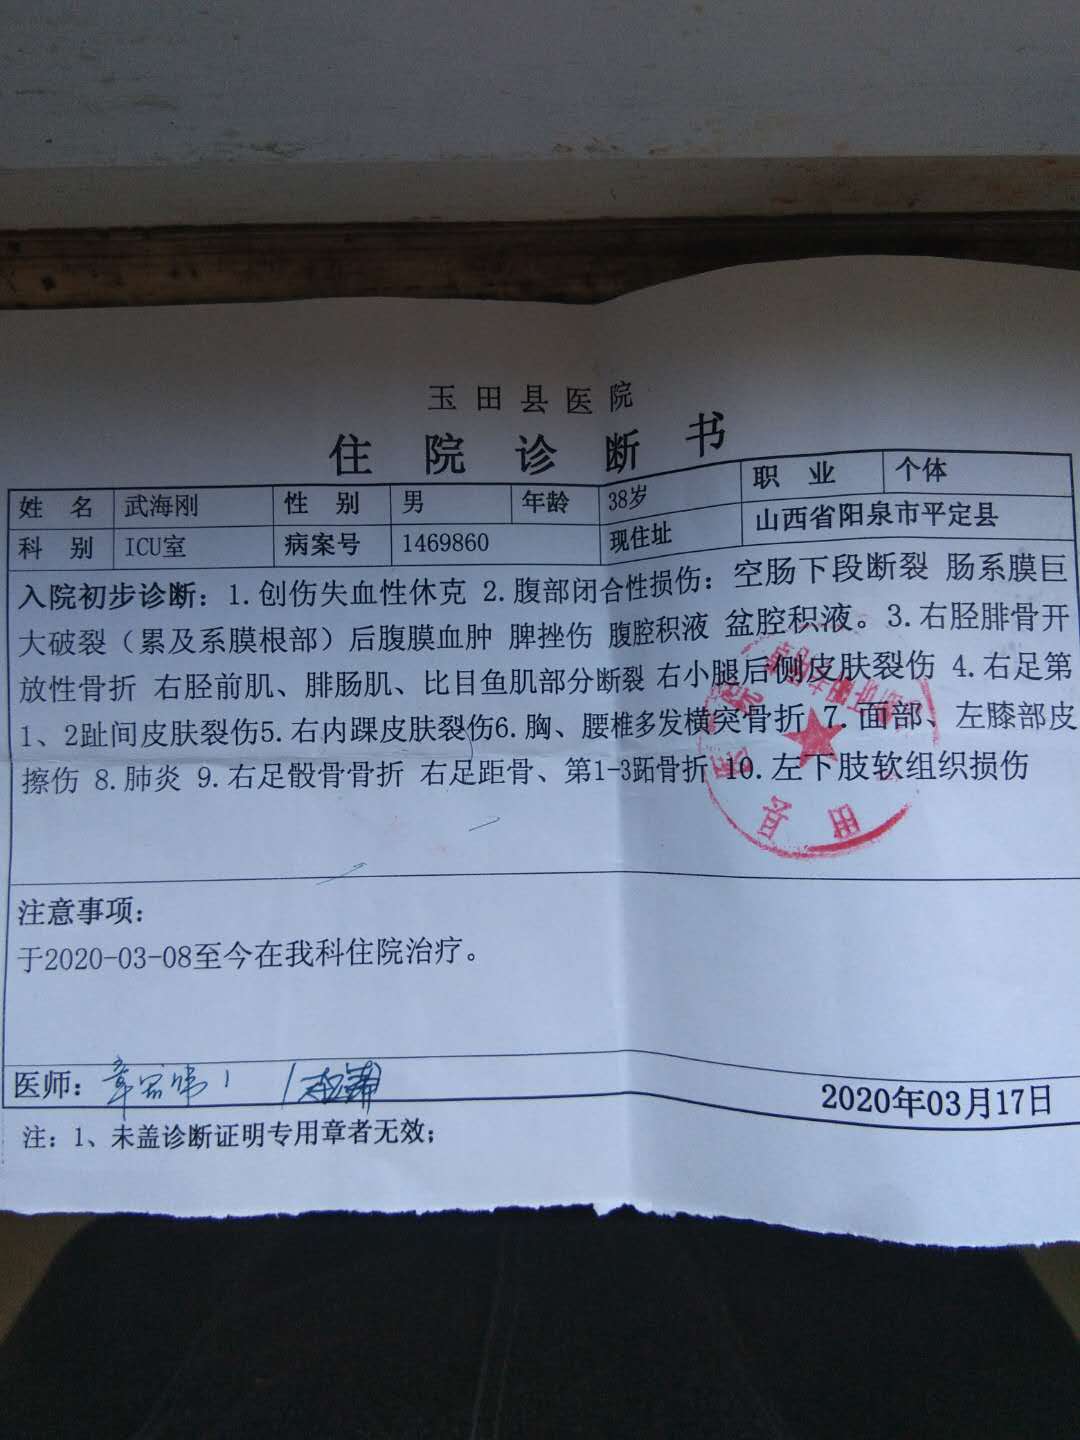 玉田县医院
住院诊断书
姓名 武海刚 性别 男 年龄 38岁 职业 个体
科别 ICU室 病案号 1469860 现住址 山西省阳泉市平定县
入院初步诊断：1.创伤失血性休克 2.腹部闭合性损伤：空肠下段断裂 肠系膜巨
大破裂（累及系膜根部）后腹膜血肿 脾挫伤 腹腔积液 盆腔积液。3.右胫腓骨开
放性骨折 右胫前肌、腓肠肌、比目鱼肌部分断裂 右小腿后侧皮肤裂伤 4.右足第
1、2趾间皮肤裂伤5.右内踝皮肤裂伤6.胸、腰椎多发横突骨折 7.面部、左膝部皮
擦伤 8.肺炎 9.右足骰骨骨折 右足距骨、第1-3跖骨折 10.左下肢软组织损伤
注意事项：
于2020-03-08至今在我科住院治疗。
医师：
2020年03月17日
注：1、未盖诊断证明专用章者无效；